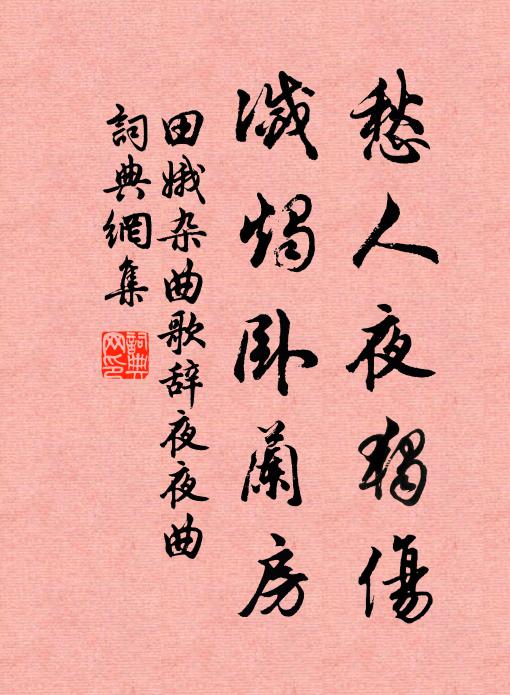 愁人夜獨傷
滅燭卧蘭房
田娥杂曲歌辞夜夜曲
詞典網集
詞典网印